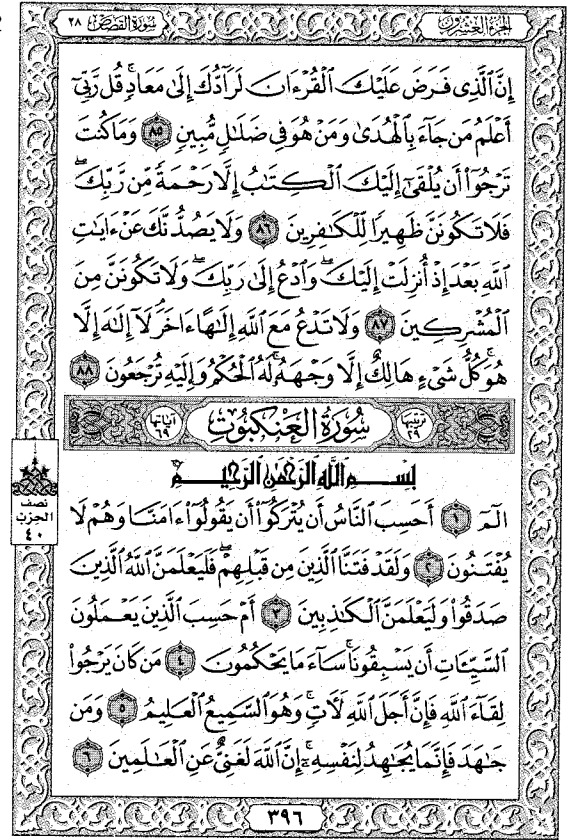 الجزء العشرون
سورة القصص ٢٨
إِنَّ ٱلَّذِى فَرَضَ عَلَيْكَ ٱلْقُرْءَانَ لَرَآدُّكَ إِلَىٰ مَعَادٍ ۚ قُل رَّبِّىٓ
أَعْلَمُ مَن جَآءَ بِٱلْهُدَىٰ وَمَنْ هُوَ فِى ضَلَٰلٍ مُّبِينٍ ٨٥ وَمَا كُنتَ
تَرْجُوٓا۟ أَن يُلْقَىٰٓ إِلَيْكَ ٱلْكِتَٰبُ إِلَّا رَحْمَةً مِّن رَّبِّكَ ۖ
فَلَا تَكُونَنَّ ظَهِيرًا لِّلْكَٰفِرِينَ ٨٦ وَلَا يَصُدُّنَّكَ عَنْ ءَايَٰتِ
ٱللَّهِ بَعْدَ إِذْ أُنزِلَتْ إِلَيْكَ ۖ وَٱدْعُ إِلَىٰ رَبِّكَ ۖ وَلَا تَكُونَنَّ مِنَ
ٱلْمُشْرِكِينَ ٨٧ وَلَا تَدْعُ مَعَ ٱللَّهِ إِلَٰهًا ءَاخَرَ ۘ لَآ إِلَٰهَ إِلَّا
هُوَ ۚ كُلُّ شَىْءٍ هَالِكٌ إِلَّا وَجْهَهُۥ ۚ لَهُ ٱلْحُكْمُ وَإِلَيْهِ تُرْجَعُونَ ٨٨
ترتيبها ٢٩ سُورَةُ الْعَنْكَبُوتِ آياتها ٦٩
بِسْمِ ٱللَّهِ ٱلرَّحْمَٰنِ ٱلرَّحِيمِ
الٓمٓ ١ أَحَسِبَ ٱلنَّاسُ أَن يُتْرَكُوٓا۟ أَن يَقُولُوٓا۟ ءَامَنَّا وَهُمْ لَا
يُفْتَنُونَ ٢ وَلَقَدْ فَتَنَّا ٱلَّذِينَ مِن قَبْلِهِمْ ۖ فَلَيَعْلَمَنَّ ٱللَّهُ ٱلَّذِينَ
صَدَقُوا۟ وَلَيَعْلَمَنَّ ٱلْكَٰذِبِينَ ٣ أَمْ حَسِبَ ٱلَّذِينَ يَعْمَلُونَ
ٱلسَّيِّـَٔاتِ أَن يَسْبِقُونَا ۚ سَآءَ مَا يَحْكُمُونَ ٤ مَن كَانَ يَرْجُوا۟
لِقَآءَ ٱللَّهِ فَإِنَّ أَجَلَ ٱللَّهِ لَـَٔاتٍ ۚ وَهُوَ ٱلسَّمِيعُ ٱلْعَلِيمُ ٥ وَمَن
جَٰهَدَ فَإِنَّمَا يُجَٰهِدُ لِنَفْسِهِۦٓ ۚ إِنَّ ٱللَّهَ لَغَنِىٌّ عَنِ ٱلْعَٰلَمِينَ ٦
نصف
الحزب
٤٠
٣٩٦